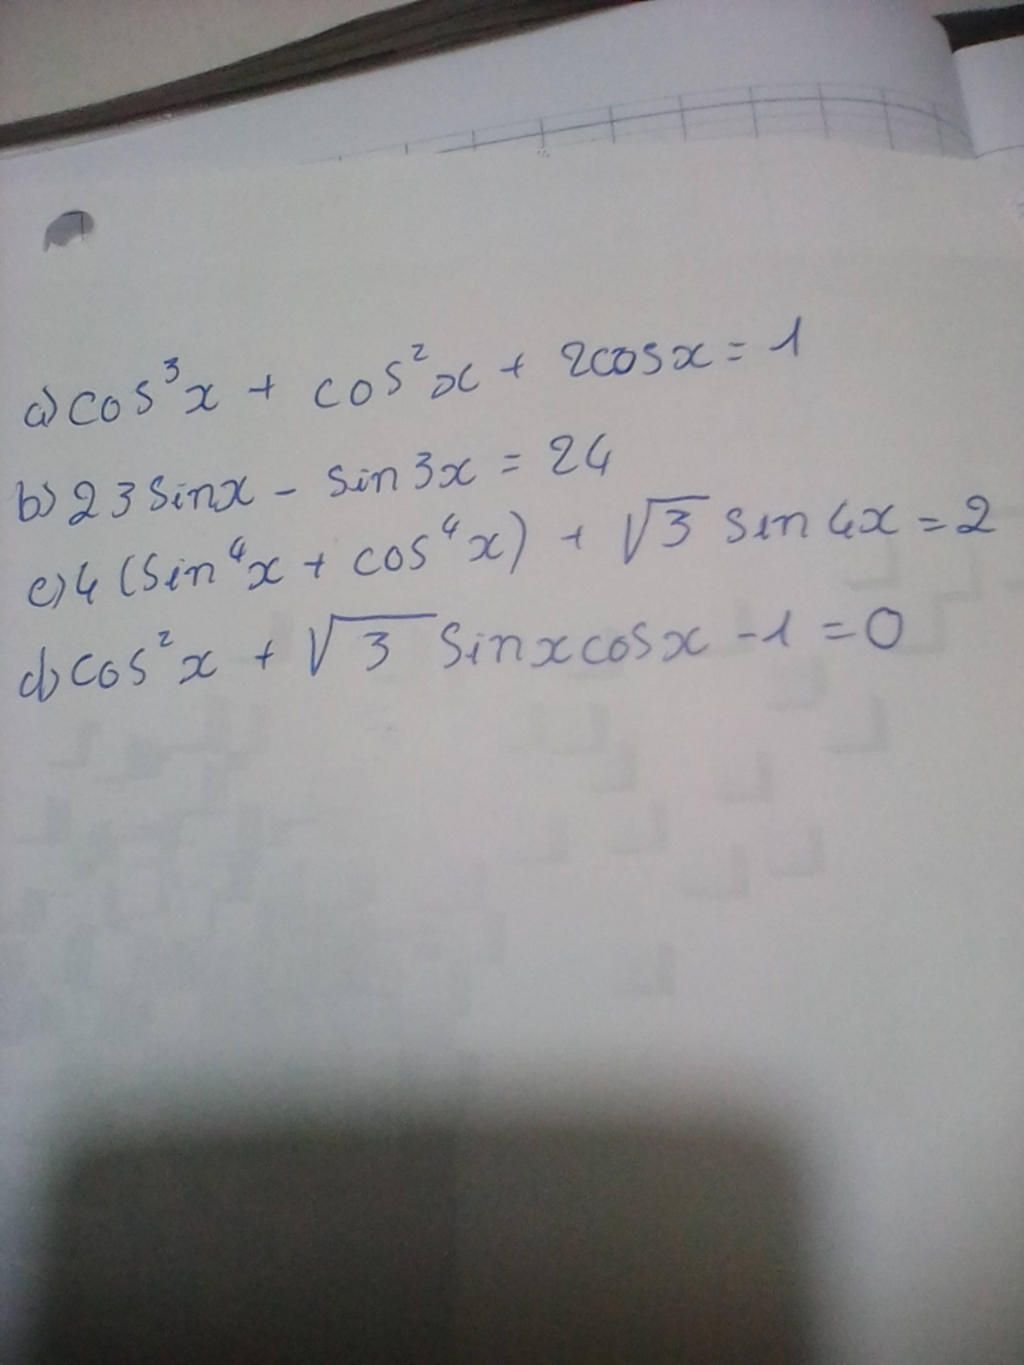 a) cos³x + cos²x + 2cosx = 1
b) 23sinx - sin3x = 24
c) 4(sin⁴x + cos⁴x) + √3 sin4x = 2
d) cos²x + √3 sinxcosx - 1 = 0